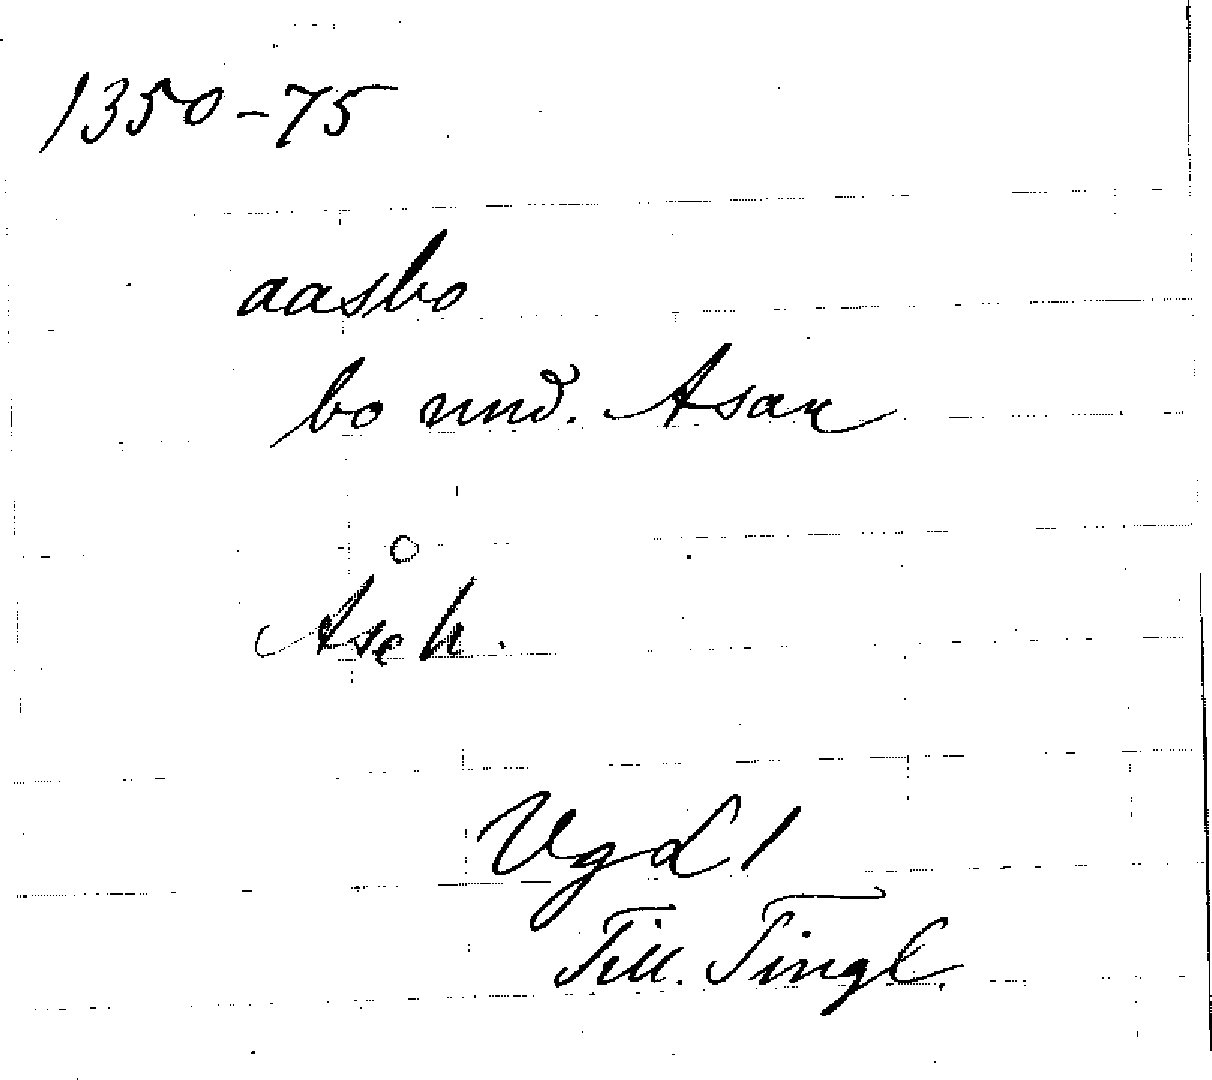 1350-75
aasbo
bo und. Asar
Åse h.
VgdL 1
Till. Tingl.